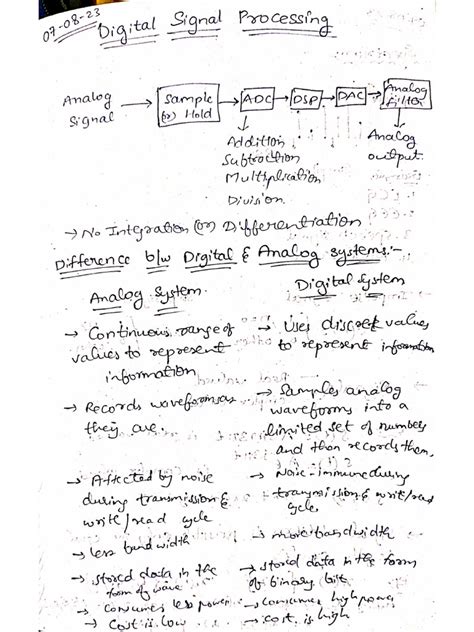 07-08-23
Digital Signal Processing
Analog Signal → Sample (or) Hold → ADC → DSP → DAC → Analog filter
Addition
Subtraction
Multiplication
Division
Analog
output
→ No Integration (or) Differentiation
Difference b/w Digital & Analog systems:-
Analog System
→ Continuous range of
values to represent
information
→ Records waveforms as
they are.
→ Affected by noise
during transmission &
write/read cycle
→ less bandwidth
→ stored data in the
form of wave
→ Consumes less power
→ Cost is low
Digital System
→ Uses discrete values
to represent information
→ Samples analog
waveforms into a
limited set of numbers
and then records them.
→ Noise-immune during
transmission & write/read
cycle.
→ more bandwidth
→ stored data in the form
of binary bit
→ Consumes high power
→ cost is high